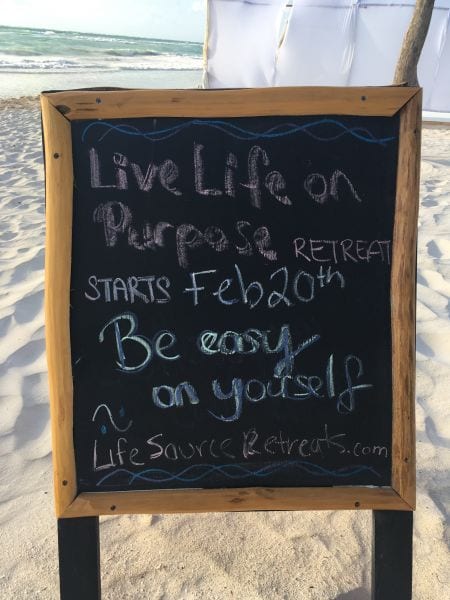 Live Life on
Purpose RETREAT
STARTS Feb 20th
Be easy
on yourself
LifeSourceRetreats.com